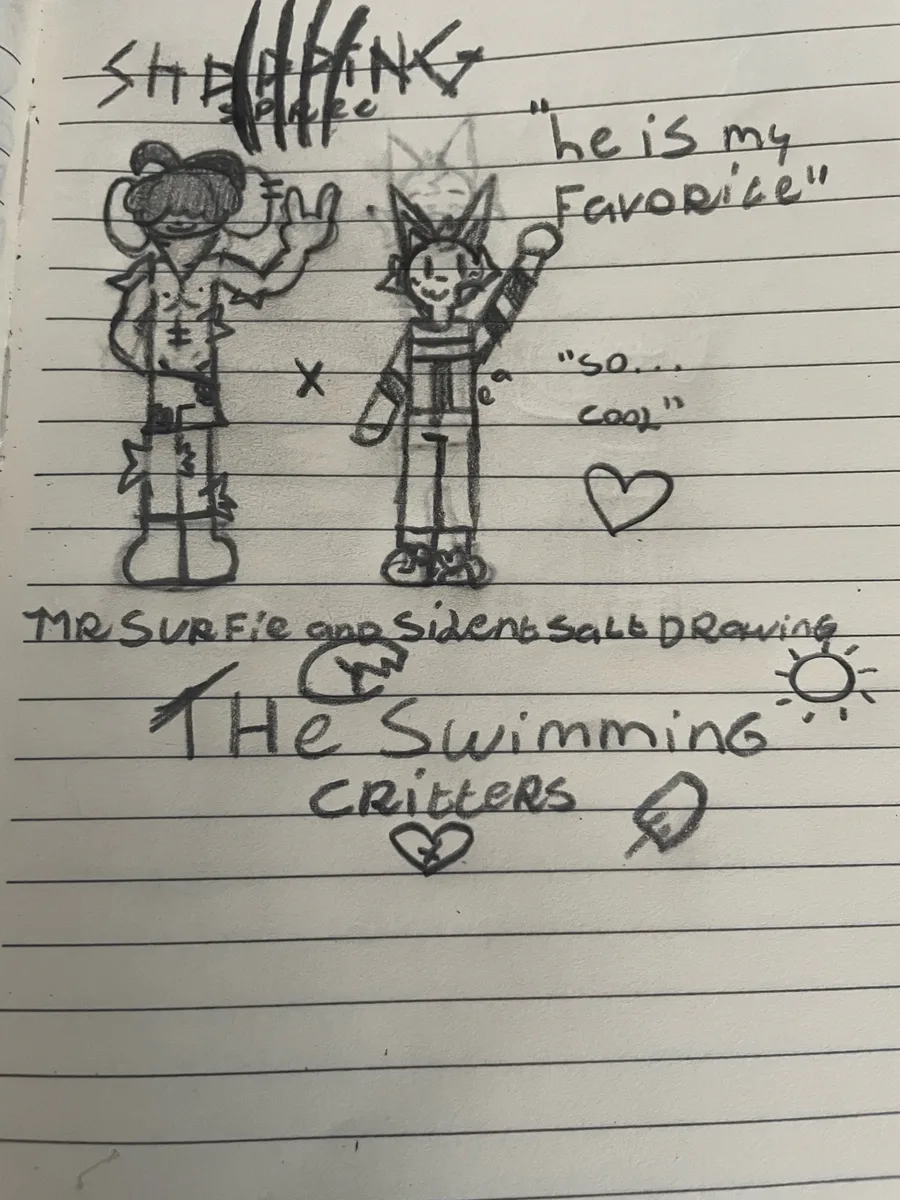 SHOPPING
SPREE
"he is my
FavoRite"
x
"so...
cool"
MR SURFie and Silent Salt DRawing
THe Swimming
CRitteRS